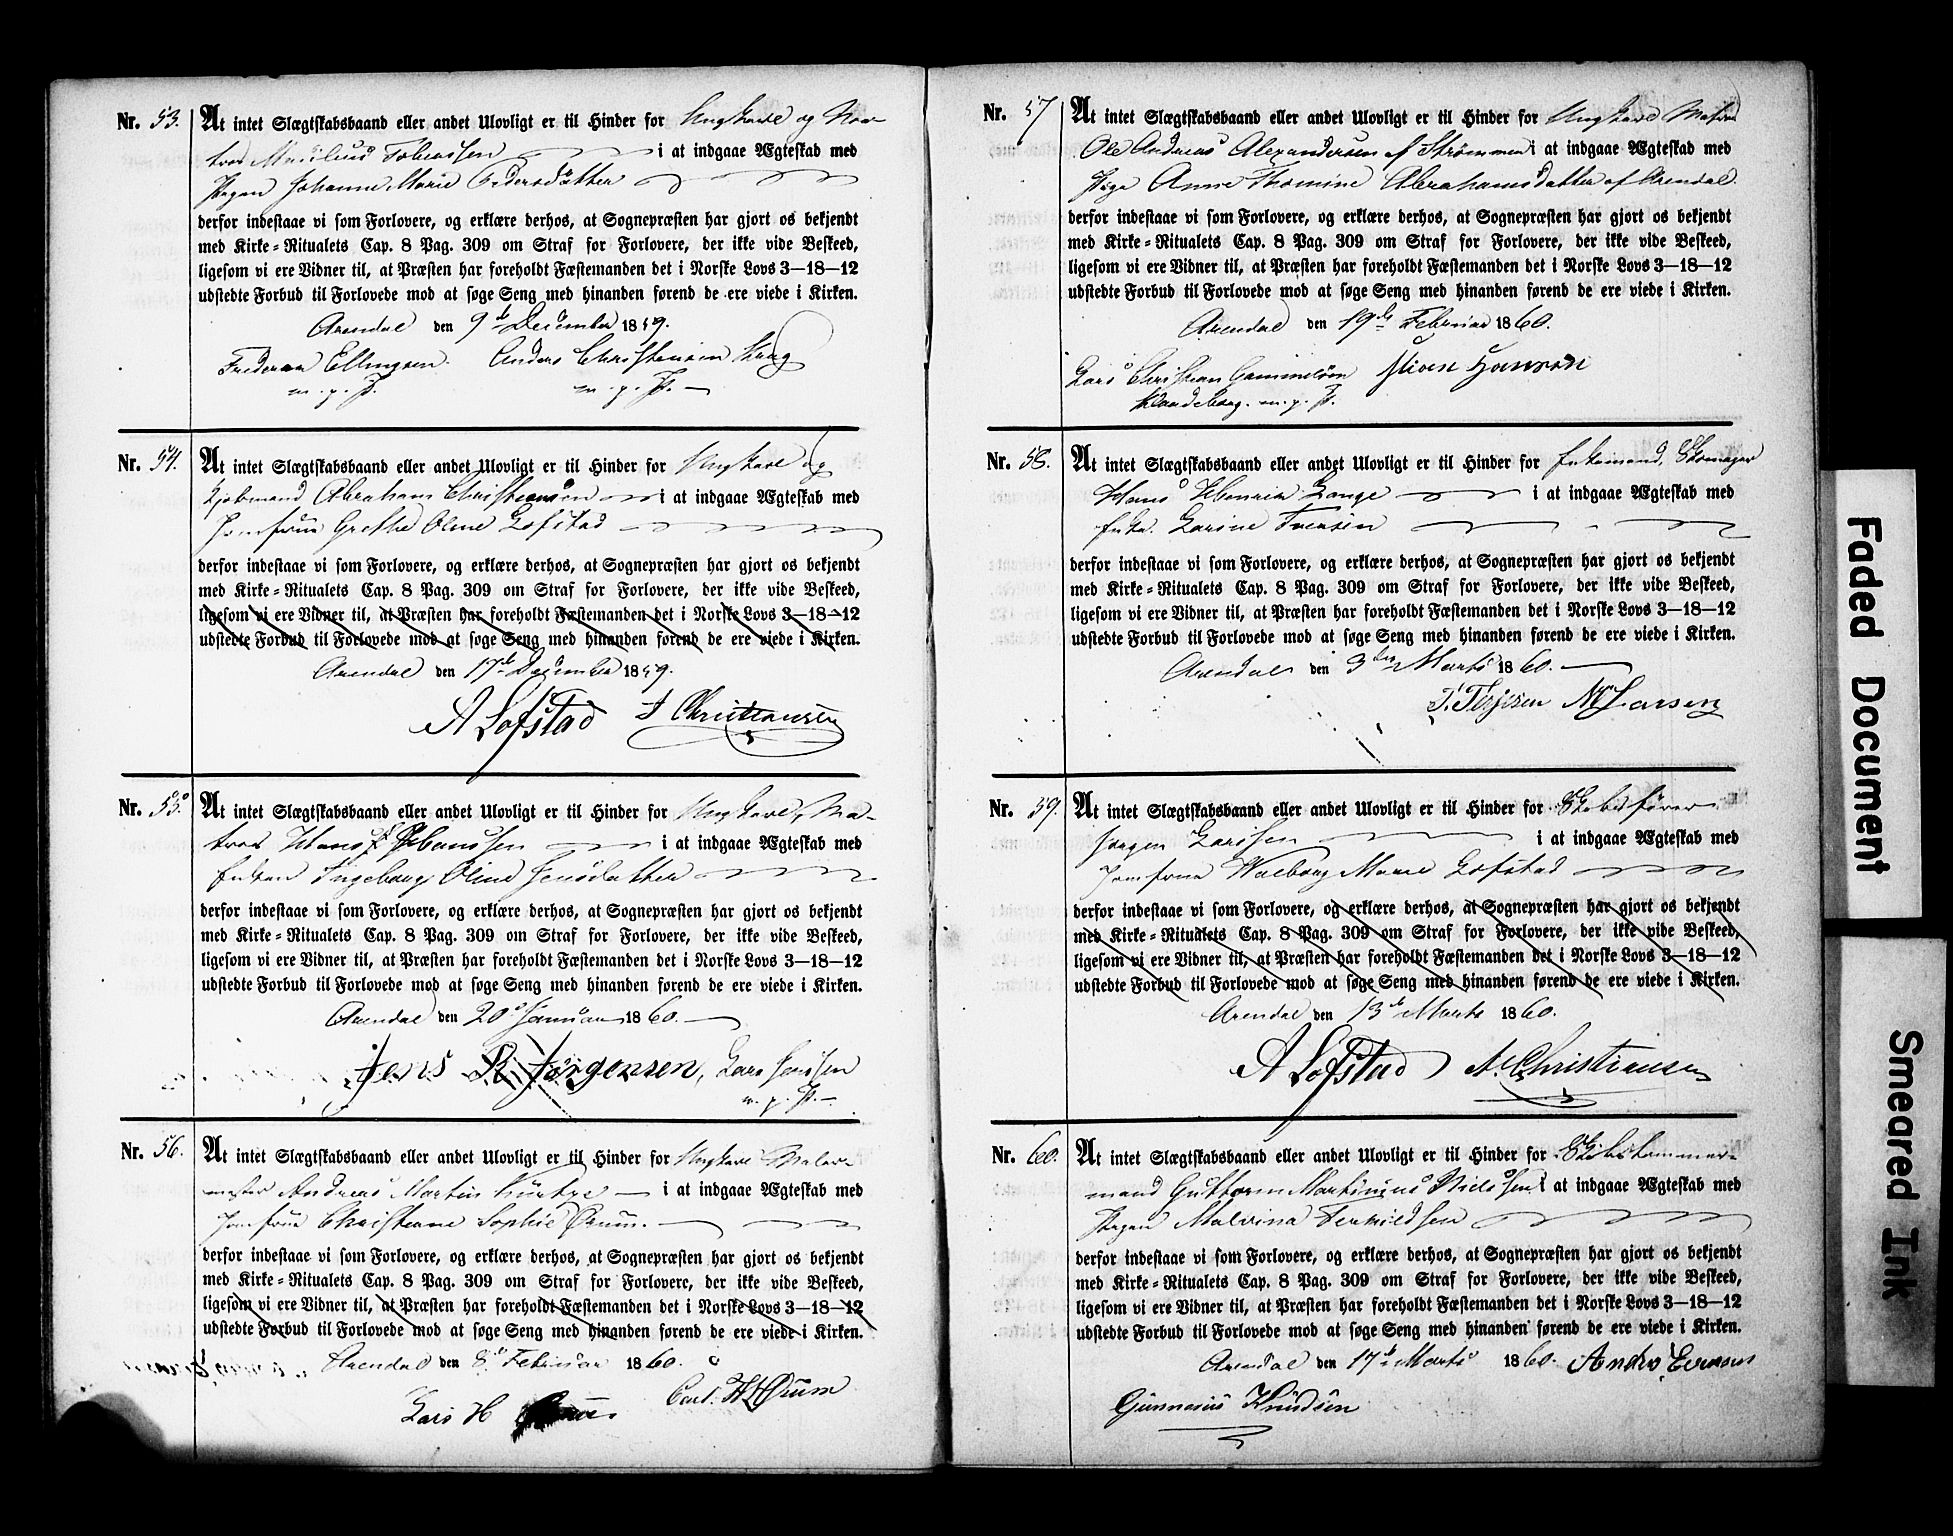 Nr. 53. At intet Slægtskabsbaand eller andet Ulovligt er til Hinder for Ungkarl og Ma-
tros Tobiassen i at indgaae Ægteskab med
Pigen Johanne Marie Pedersdatter
derfor indestaae vi som Forlovere, og erklære derhos, at Sognepræsten har gjort os bekjendt
med Kirke-Ritualets Cap. 8 Pag. 309 om Straf for Forlovere, der ikke vide Beskeed,
ligesom vi ere Vidner til, at Præsten har foreholdt Fæstemanden det i Norske Lovs 3—18—12
udstedte Forbud til Forlovede mod at søge Seng med hinanden førend de ere viede i Kirken.
Arendal den 9de December 1859.
Ellingsen. Anders Christensen Krag
m. p. P. m. p. P.
Nr. 54. At intet Slægtskabsbaand eller andet Ulovligt er til Hinder for Ungkarl og
Kjøbmand Abraham Christiansen i at indgaae Ægteskab med
Jomfrue Grethe Oline Løfstad
derfor indestaae vi som Forlovere, og erklære derhos, at Sognepræsten har gjort os bekjendt
med Kirke-Ritualets Cap. 8 Pag. 309 om Straf for Forlovere, der ikke vide Beskeed,
ligesom vi ere Vidner til, at Præsten har foreholdt Fæstemanden det i Norske Lovs 3—18—12
udstedte Forbud til Forlovede mod at søge Seng med hinanden førend de ere viede i Kirken.
Arendal den 17de December 1859.
A Løfstad Christiansen
Nr. 55. At intet Slægtskabsbaand eller andet Ulovligt er til Hinder for Ungkarl, Ma-
tros Hans i at indgaae Ægteskab med
Enken Ingeborg Oline Jensdatter
derfor indestaae vi som Forlovere, og erklære derhos, at Sognepræsten har gjort os bekjendt
med Kirke-Ritualets Cap. 8 Pag. 309 om Straf for Forlovere, der ikke vide Beskeed,
ligesom vi ere Vidner til, at Præsten har foreholdt Fæstemanden det i Norske Lovs 3—18—12
udstedte Forbud til Forlovede mod at søge Seng med hinanden førend de ere viede i Kirken.
Arendal den 20 Januar 1860.
Jens R Jørgensen, Lars Jenssen
m. p. P.
Nr. 56. At intet Slægtskabsbaand eller andet Ulovligt er til Hinder for Ungkarl Maler-
mester Andreas Martin i at indgaae Ægteskab med
Jomfrue Christiane Sophie Ørum.
derfor indestaae vi som Forlovere, og erklære derhos, at Sognepræsten har gjort os bekjendt
med Kirke-Ritualets Cap. 8 Pag. 309 om Straf for Forlovere, der ikke vide Beskeed,
ligesom vi ere Vidner til, at Præsten har foreholdt Fæstemanden det i Norske Lovs 3—18—12
udstedte Forbud til Forlovede mod at søge Seng med hinanden førend de ere viede i Kirken.
Arendal den 8de Februar 1860.
Lars H Carl. Ørum
Nr. 57 At intet Slægtskabsbaand eller andet Ulovligt er til Hinder for Ungkarl Matros
Ole Andreas Alexandersen af Strømmen i at indgaae Ægteskab med
Pige Anne Thomine Abrahamsdatter af Arendal
derfor indestaae vi som Forlovere, og erklære derhos, at Sognepræsten har gjort os bekjendt
med Kirke-Ritualets Cap. 8 Pag. 309 om Straf for Forlovere, der ikke vide Beskeed,
ligesom vi ere Vidner til, at Præsten har foreholdt Fæstemanden det i Norske Lovs 3—18—12
udstedte Forbud til Forlovede mod at søge Seng med hinanden førend de ere viede i Kirken.
Arendal den 19de Februar 1860.
Lars Christian Hansen
m. p. P.
Nr. 58. At intet Slægtskabsbaand eller andet Ulovligt er til Hinder for Enkemand, Skomager
Hans Henrik Lange i at indgaae Ægteskab med
Enke. Larine Iversen
derfor indestaae vi som Forlovere, og erklære derhos, at Sognepræsten har gjort os bekjendt
med Kirke-Ritualets Cap. 8 Pag. 309 om Straf for Forlovere, der ikke vide Beskeed,
ligesom vi ere Vidner til, at Præsten har foreholdt Fæstemanden det i Norske Lovs 3—18—12
udstedte Forbud til Forlovede mod at søge Seng med hinanden førend de ere viede i Kirken.
Arendal den 3die Marts 1860.
T. Terjesen Larsen
Nr. 59. At intet Slægtskabsbaand eller andet Ulovligt er til Hinder for Skibsfører
Jørgen Larssen i at indgaae Ægteskab med
Jomfrue Walborg Marie Løfstad
derfor indestaae vi som Forlovere, og erklære derhos, at Sognepræsten har gjort os bekjendt
med Kirke-Ritualets Cap. 8 Pag. 309 om Straf for Forlovere, der ikke vide Beskeed,
ligesom vi ere Vidner til, at Præsten har foreholdt Fæstemanden det i Norske Lovs 3—18—12
udstedte Forbud til Forlovede mod at søge Seng med hinanden førend de ere viede i Kirken.
Arendal den 13de Marts 1860.
A Løfstad A. Christiansen
Nr. 60. At intet Slægtskabsbaand eller andet Ulovligt er til Hinder for Skibstømmer-
mand Guttorm Martinius Nielssen i at indgaae Ægteskab med
Pigen Malvina Terkildsen
derfor indestaae vi som Forlovere, og erklære derhos, at Sognepræsten har gjort os bekjendt
med Kirke-Ritualets Cap. 8 Pag. 309 om Straf for Forlovere, der ikke vide Beskeed,
ligesom vi ere Vidner til, at Præsten har foreholdt Fæstemanden det i Norske Lovs 3—18—12
udstedte Forbud til Forlovede mod at søge Seng med hinanden førend de ere viede i Kirken.
Arendal den 17de Marts 1860. Anders Evensen
Gunnerius Knudsen
Faded Document
Smeared Ink